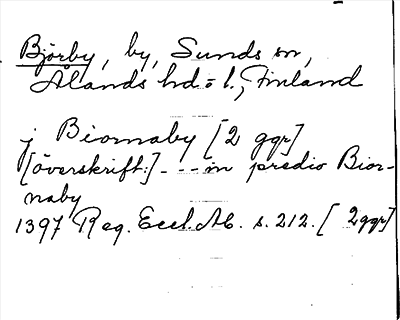 Björby, by, Sunds sn,
Ålands hd.=l., Finland
j Biornaby [2 ggr]
[överskrift:] - - - in predio Bior-
naby
1397 Reg. Eccl. Ab. s. 212. [2 ggr]